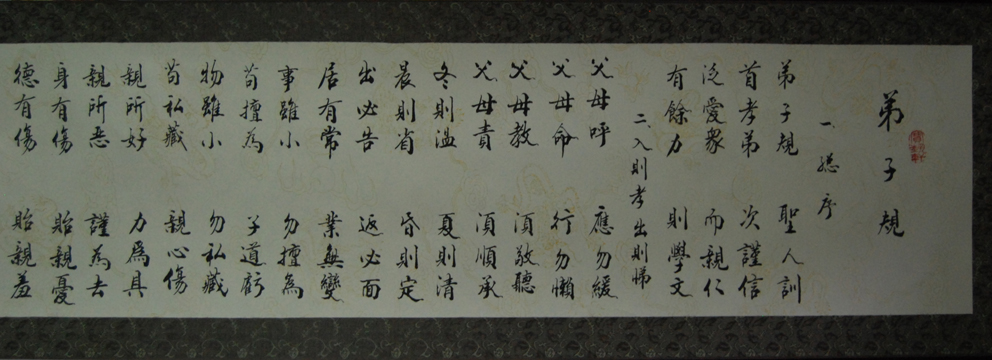 弟子規
一 總序
弟子規 聖人訓
首孝弟 次謹信
泛愛眾 而親仁
有餘力 則學文
二 入則孝出則悌
父母呼 應勿緩
父母命 行勿懶
父母教 須敬聽
父母責 須順承
冬則溫 夏則清
晨則省 昏則定
出必告 返必面
居有常 業無變
事雖小 勿擅為
苟擅為 子道虧
物雖小 勿私藏
苟私藏 親心傷
親所好 力為具
親所惡 謹為去
身有傷 貽親憂
德有傷 貽親羞